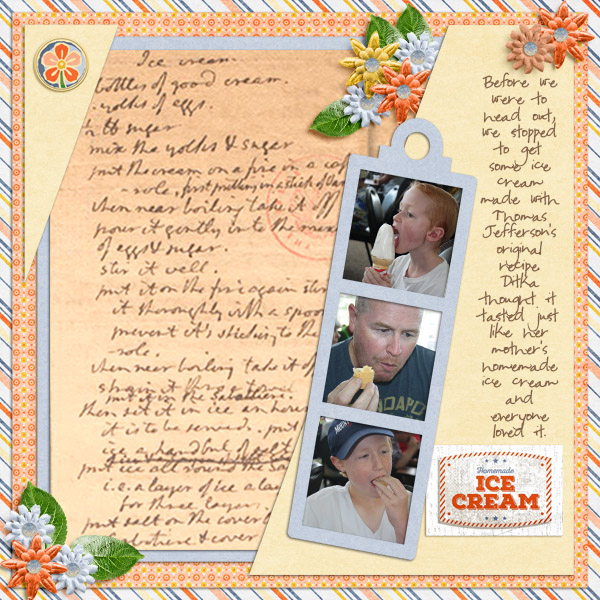 Ice cream.
bottles of good cream.
yolks of eggs.
½ ℔ sugar
mix the yolks & sugar
put the cream on a fire in a
- role, first putting in a stick of
when near boiling take it off
pour it gently into the
of eggs & sugar.
stir it well.
put it on the fire again
it thoroughly with a spoon
prevent it's sticking to the
- role.
when near boiling take it off
strain it
put it in the Sabottiere.
then set it in ice an hour
it is to be served. put
put ice all round the
i.e. a layer of ice a
for three layers.
put salt on the cover
& cover
Before we
were to
head out,
we stopped
to get
some ice
cream
made with
Thomas
Jefferson's
original
recipe
Ditka
thought it
tasted just
like her
mother's
homemade
ice cream
and
everyone
loved it.
Homemade
ICE
CREAM